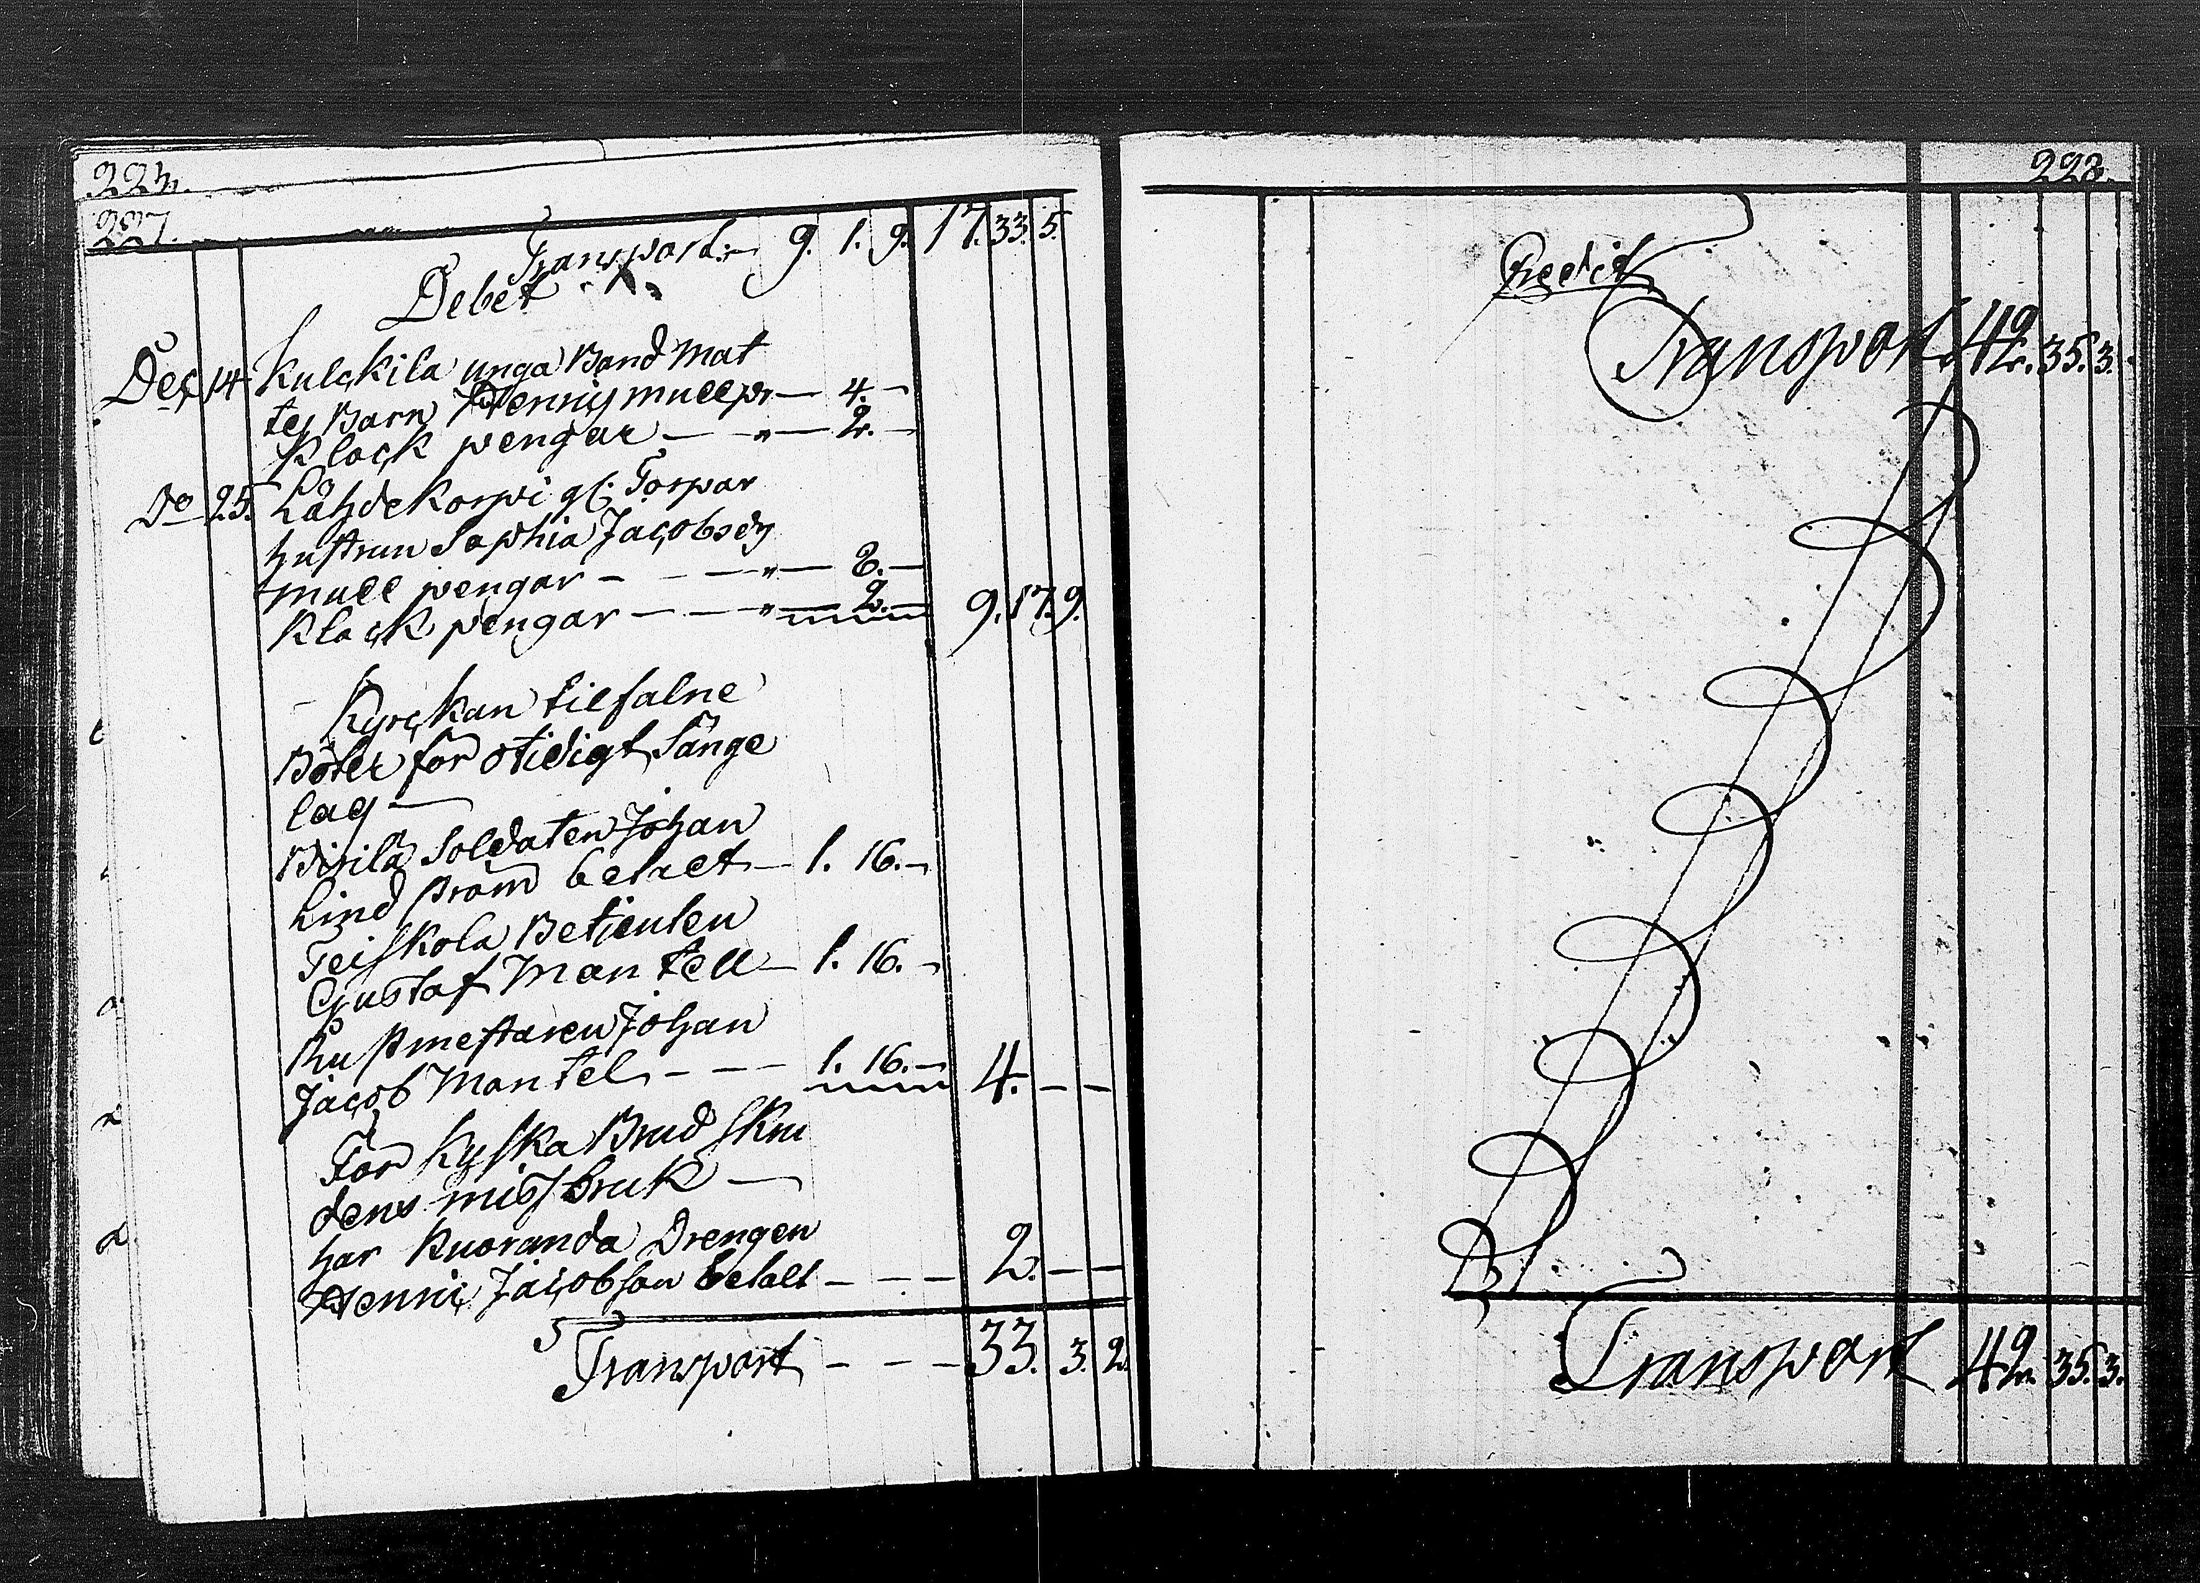 227.
Transport. — 9. 1. 9. 17. 33. 5.
Debet
Dec 14 Kulckila unga Bond Mat
tes Barn Hennis mull p — 4. —
Klock pengar — „ — 2. —
Do 25. Lähdekorpi gl: Torpar
hustrun Sophia Jacobsdr
mull pengar — — — „ — 6. —
Klock pengar — — — „ — 2. — 9. 17. 9.
Kyrckan tilfalne
Böter för otidigt Sänge
lag —
Soldaten Johan
Lindström betalt — 1. 16. —
Teiskola Betienten
Gustaf Mantell — 1. 16. —
Rustmestaren Johan
Jacob Mantel — — — 1. 16. — 4. — —
För Kyska Brud Skru
dens missbruk —
har Kuoranda Drengen
Hennic Jacobson betalt — — — 2. — —
Transport — — — 33. 3. 2.
228.
Credit
Transport 42. 35. 3.
Transport 42. 35. 3.